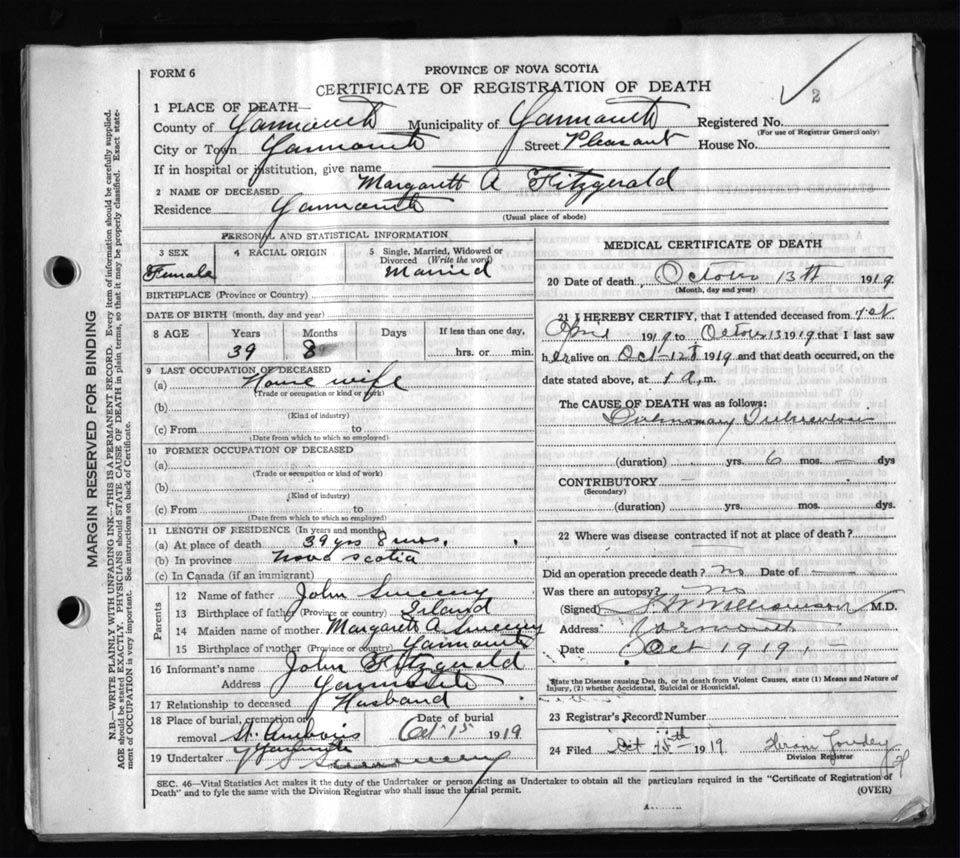 FORM 6
PROVINCE OF NOVA SCOTIA
CERTIFICATE OF REGISTRATION OF DEATH
2
1 PLACE OF DEATH—
County of Yarmouth Municipality of Yarmouth Registered No.
(For use of Registrar General only)
City or Town Yarmouth Street Pleasant House No.
If in hospital or institution, give name
2 NAME OF DECEASED Margarett A Fitzgerald
Residence Yarmouth
(Usual place of abode)
PERSONAL AND STATISTICAL INFORMATION
3 SEX Female
4 RACIAL ORIGIN
5 Single, Married, Widowed or Divorced (Write the word) Married
BIRTHPLACE (Province or Country)
DATE OF BIRTH (month, day and year)
8 AGE Years Months Days If less than one day,
39 8 hrs. or min.
9 LAST OCCUPATION OF DECEASED
(a) House wife
(Trade or occupation or kind of work)
(b)
(Kind of industry)
(c) From to
(Date from which to which so employed)
10 FORMER OCCUPATION OF DECEASED
(a)
(Trade or occupation or kind of work)
(b)
(Kind of industry)
(c) From to
(Date from which to which so employed)
11 LENGTH OF RESIDENCE (In years and months)
(a) At place of death 39 yrs 8 mos.
(b) In province Nova Scotia
(c) In Canada (if an immigrant)
Parents
12 Name of father John Sweeny
13 Birthplace of father (Province or country) Irland
14 Maiden name of mother Margarett A Sweeney
15 Birthplace of mother (Province or country) Yarmouth
16 Informant's name John Fitzgerald
Address Yarmouth
17 Relationship to deceased Husband
18 Place of burial, cremation or removal St. Ambrois Yarmouth
Date of burial Oct 15 1919
19 Undertaker Sweeney
MEDICAL CERTIFICATE OF DEATH
20 Date of death October 13th 1919
(Month, day and year)
21 I HEREBY CERTIFY, that I attended deceased from 1st
April 1919 to October 13 1919 that I last saw
her alive on Oct-12th 1919 and that death occurred, on the
date stated above, at 1 a.m.
The CAUSE OF DEATH was as follows:
Pulmonary Tuberculosis
(duration) yrs. 6 mos. — dys
CONTRIBUTORY —
(Secondary)
(duration) yrs. mos. dys.
22 Where was disease contracted if not at place of death?
Did an operation precede death? No Date of —
Was there an autopsy? No
(Signed) M.D.
Address Yarmouth
Date Oct 1919
State the Disease causing Death, or in death from Violent Causes, state (1) Means and Nature of Injury, (2) whether Accidental, Suicidal or Homicidal.
23 Registrar's Record Number
24 Filed Oct 15th 1919 Hiram Goudey
Division Registrar
SEC. 46—Vital Statistics Act makes it the duty of the Undertaker or person acting as Undertaker to obtain all the particulars required in the "Certificate of Registration of
Death" and to fyle the same with the Division Registrar who shall issue the burial permit.
(OVER)
MARGIN RESERVED FOR BINDING
N.B.—WRITE PLAINLY WITH UNFADING INK—THIS IS A PERMANENT RECORD. Every item of information should be carefully supplied.
AGE should be stated EXACTLY. PHYSICIANS should STATE CAUSE OF DEATH in plain terms, so that it may be properly classified. Exact statement of OCCUPATION is very important. See instructions on back of Certificate.